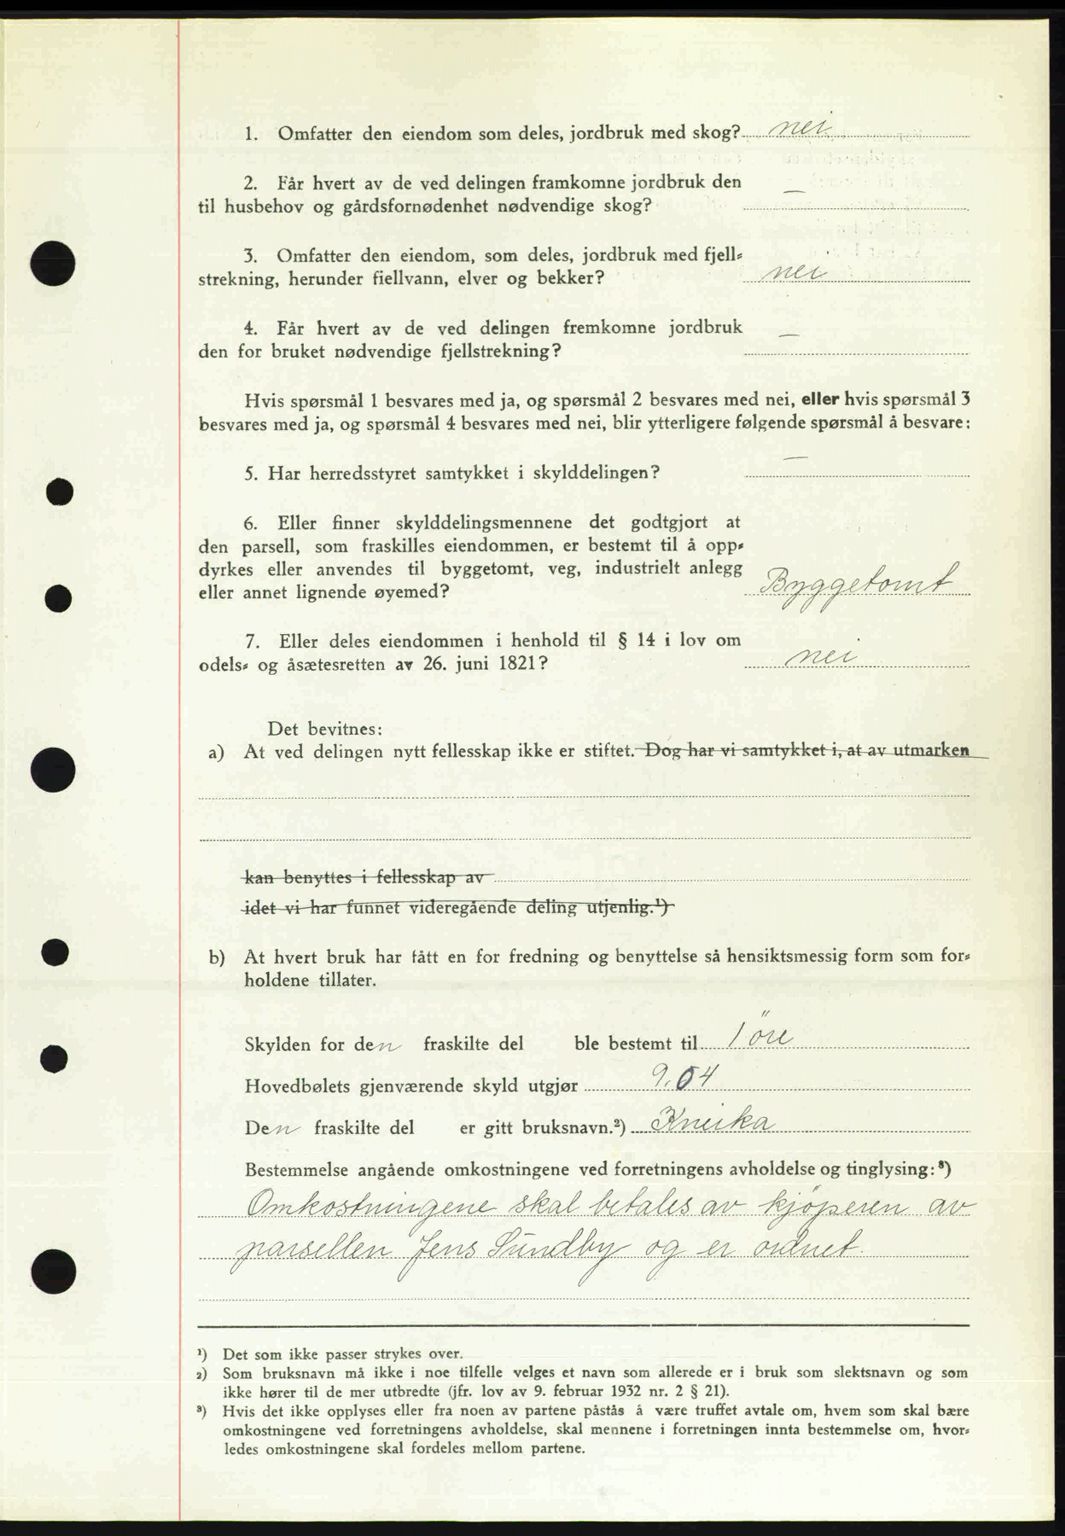 1. Omfatter den eiendom som deles, jordbruk med skog? nei
2. Får hvert av de ved delingen framkomne jordbruk den
til husbehov og gårdsfornødenhet nødvendige skog? —
3. Omfatter den eiendom, som deles, jordbruk med fjell-
strekning, herunder fiellvann, elver og bekker? nei
4. Får hvert av de ved delingen fremkomne jordbruk
den for bruket nødvendige fjellstrekning? —
Hvis spørsmål 1 besvares med ja, og spørsmål 2 besvares med nei, eller hvis spørsmål 3
besvares med ja, og spørsmål 4 besvares med nei, blir ytterligere følgende spørsmål å besvare:
5. Har herredsstyret samtykket i skylddelingen? —
6. Eller finner skylddelingsmennene det godtgjort at
den parsell, som fraskilles eiendommen, er bestemt til å opp-
dyrkes eller anvendes til byggetomt, veg, industrielt anlegg
eller annet lignende øyemed? Byggetomt
7. Eller deles eiendommen i henhold til § 14 i lov om
odels- og åsætesretten av 26. juni 1821? nei
Det bevitnes:
a) At ved delingen nytt fellesskap ikke er stiftet. Dog har vi samtykket i, at av utmarken
kan benyttes i fellesskap av
idet vi har funnet videregående deling utjenlig.¹)
b) At hvert bruk har fått en for fredning og benyttelse så hensiktsmessig form som for-
holdene tillater.
Skylden for den fraskilte del ble bestemt til 1 öre
Hovedbølets gjenværende skyld utgjør 9.04
Den fraskilte del er gitt bruksnavn.²) Kneika
Bestemmelse angående omkostningene ved forretningens avholdelse og tinglysing:³)
Omkostningene skal betales av kjöperen av
parsellen Jens Sundby og er ordnet.
¹) Det som ikke passer strykes over.
²) Som bruksnavn må ikke i noe tilfelle velges et navn som allerede er i bruk som slektsnavn og som
ikke hører til de mer utbredte (jfr. lov av 9. februar 1932 nr. 2 § 21).
³) Hvis det ikke opplyses eller fra noen av partene påstås å være truffet avtale om, hvem som skal bære
omkostningene ved forretningens avholdelse, skal mennene i forretningen innta bestemmelse om, hvor-
ledes omkostningene skal fordeles mellom partene.